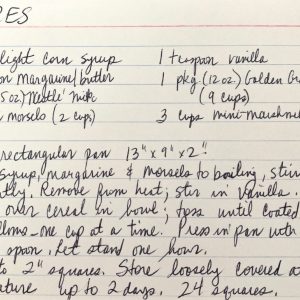 RES
light corn syrup 1 teaspoon vanilla
on margarine/butter 1 pkg (12 oz.) Golden Gr
5 oz.) Nestle' Milk (9 cups)
morsels (2 cups) 3 cups mini-marshm
rectangular pan 13" x 9" x 2".
syrup, margarine & morsels to boiling, stir
tly. Remove from heat; stir in vanilla.
over cereal in bowl; toss until coated
llows one cup at a time. Press in pan with
spoon. Let stand one hour.
to 2" squares. Store loosely covered at
ature up to 2 days. 24 squares.